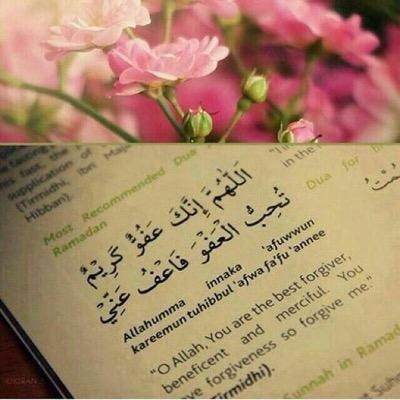 favorite
this fast, the
supplication of
(Tirmidhi, Ibn Maj
Hibban).
Most Recommended Dua
Ramadan
اَللَّهُمَّ إِنَّكَ عَفُوٌّ كَرِيْمٌ
تُحِبُّ الْعَفْوَ فَاعْفُ عَنِّيْ
Allahumma innaka 'afuwwun
kareemun tuhibbul 'afwa fa'fu 'annee
"O Allah, You are the best forgiver,
beneficent and merciful. You
ve forgiveness so forgive me."
Tirmidhi).
in the
Dua for
Sunnah in Ramad